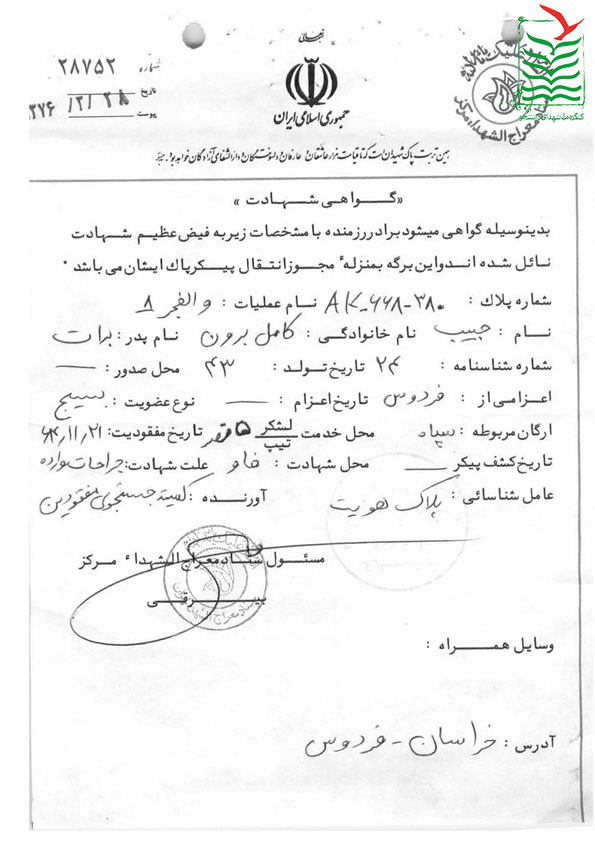 بتعالی
شماره ۲۸۷۵۲
تاریخ ۱۳۷۶/۲/۲۸
پیوست
جمهوری اسلامی ایران
کنگره ملی شهدای دانشجو
معراج الشهداء مرکز
همین تربت پاک شهیدان است که تا قیامت مزار عاشقان و عارفان و دلسوختگان و دارالشفای آزادگان خواهد بود
«گواهی شهادت»
بدینوسیله گواهی میشود برادر رزمنده با مشخصات زیر به فیض عظیم شهادت
نائل شده اند و این برگه بمنزله ٔ مجوز انتقال پیکر پاک ایشان می باشد ۰
شماره پلاک : AK-668-380 نام عملیات : والفجر ۸
نام : حبیب نام خانوادگی : کامل برون نام پدر : برات
شماره شناسنامه : ۲۴ تاریخ تولد : ۴۳ محل صدور : —
اعزامی از : فردوس تاریخ اعزام : — نوع عضویت : بسیج
ارگان مربوطه : سپاه محل خدمت لشکر تیپ ۵ نصر تاریخ مفقودیت : ۶۴,۱۱,۲۱
تاریخ کشف پیکر — محل شهادت : فاو علت شهادت : جراحات وارده
عامل شناسائی : پلاک هویت آورنده : کمیته جستجوی مفقودین
مسئول ستاد معراج الشهداء مرکز
وسایل همراه :
آدرس : خراسان - فردوس